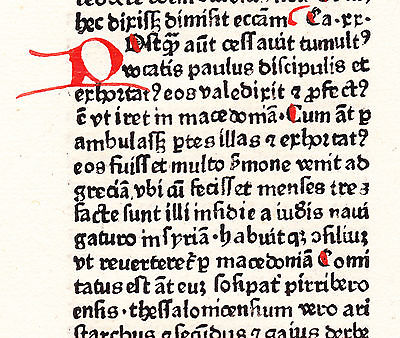 hec dixisʒ dimisit ecc̄am Ca·xx·
POstq̄ꝫ aūt cessauit tumultꝰ
vocatis paulus discipulis et
exhortatꝰ eos valedixit ⁊ ꝓfectꝰ
ē vt iret in macedoniā· Cum āt ꝑ
ambulasʒ ꝑtes illas ⁊ exhortatꝰ
eos fuisʒ et multo ẜmone venit ad
greciā vbi cū fecisʒ et menses tres
facte sunt illi insidie a iudis naui
gaturo in syriā· habuitqꝫ ꝯsiliuꝫ
vt reuertereť ꝑ macedoniā Comi
tatus est āt euꝫ sosipať pirribero
ensis· thessalonicensium vero ari
starchus ⁊ secūdus ⁊ gaius derbe